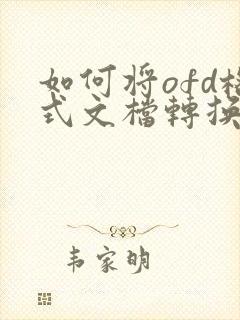 如何将ofd格
式文檔轉換
韦家明